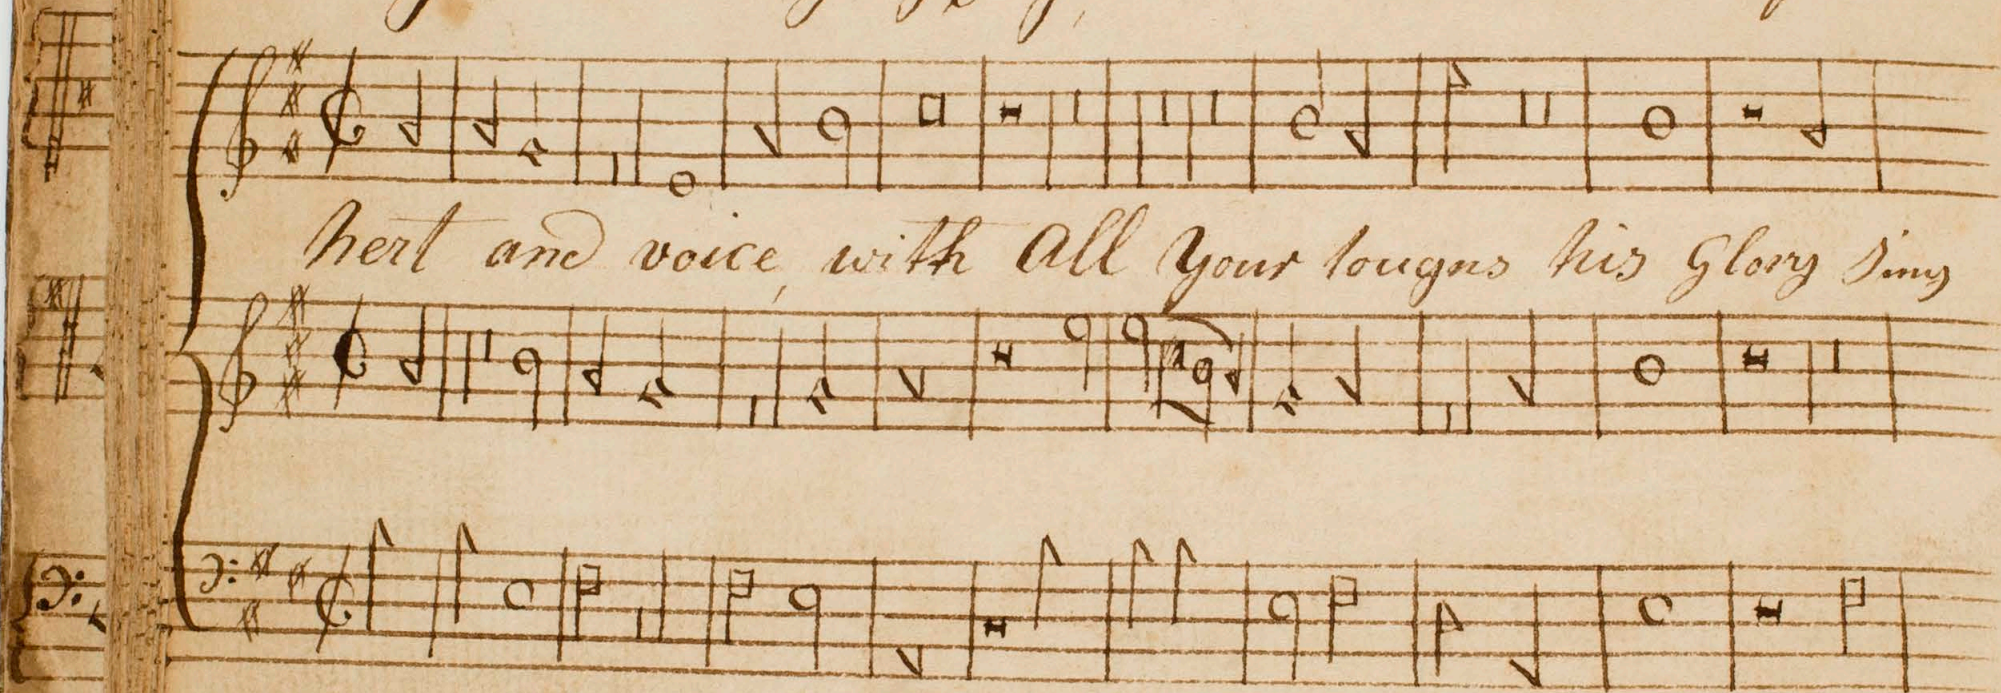 hert and voice, with All your tougns his Glory Sing